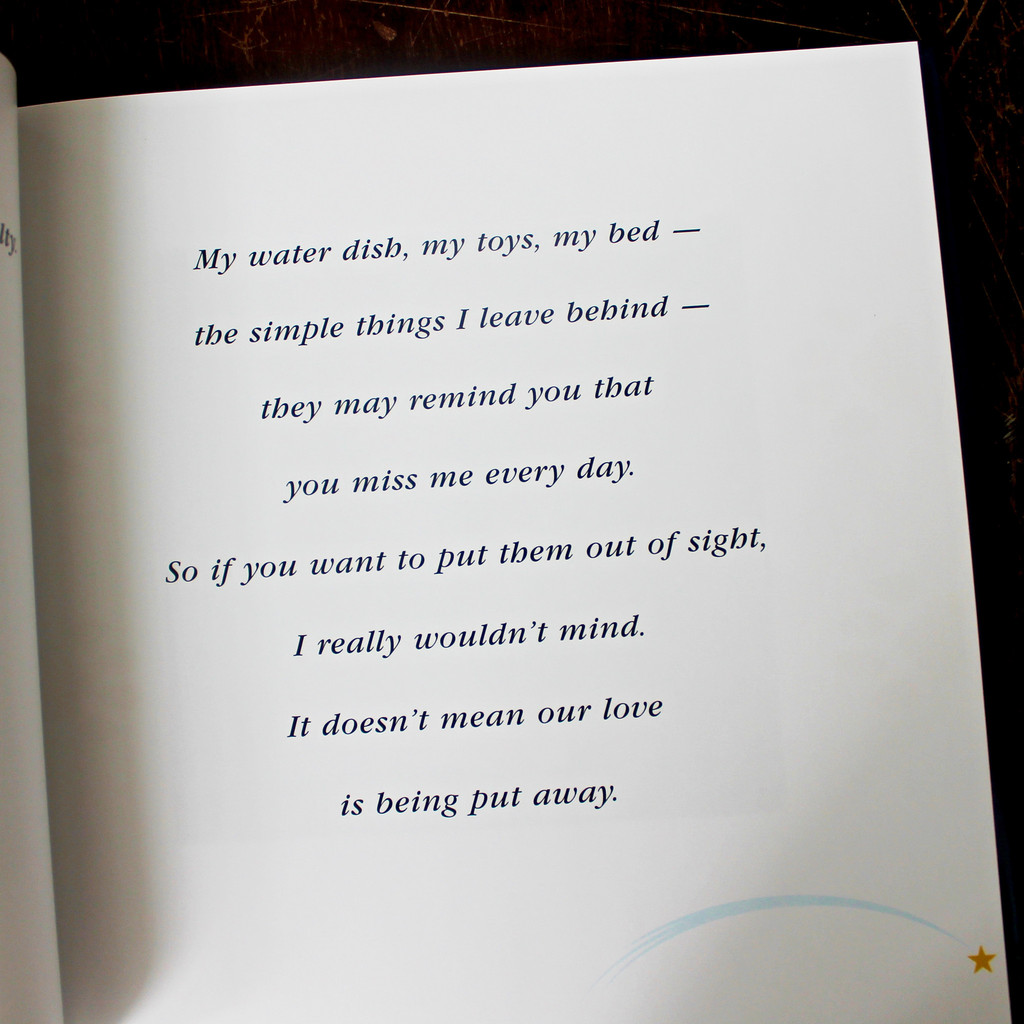 My water dish, my toys, my bed —
the simple things I leave behind —
they may remind you that
you miss me every day.
So if you want to put them out of sight,
I really wouldn't mind.
It doesn't mean our love
is being put away.